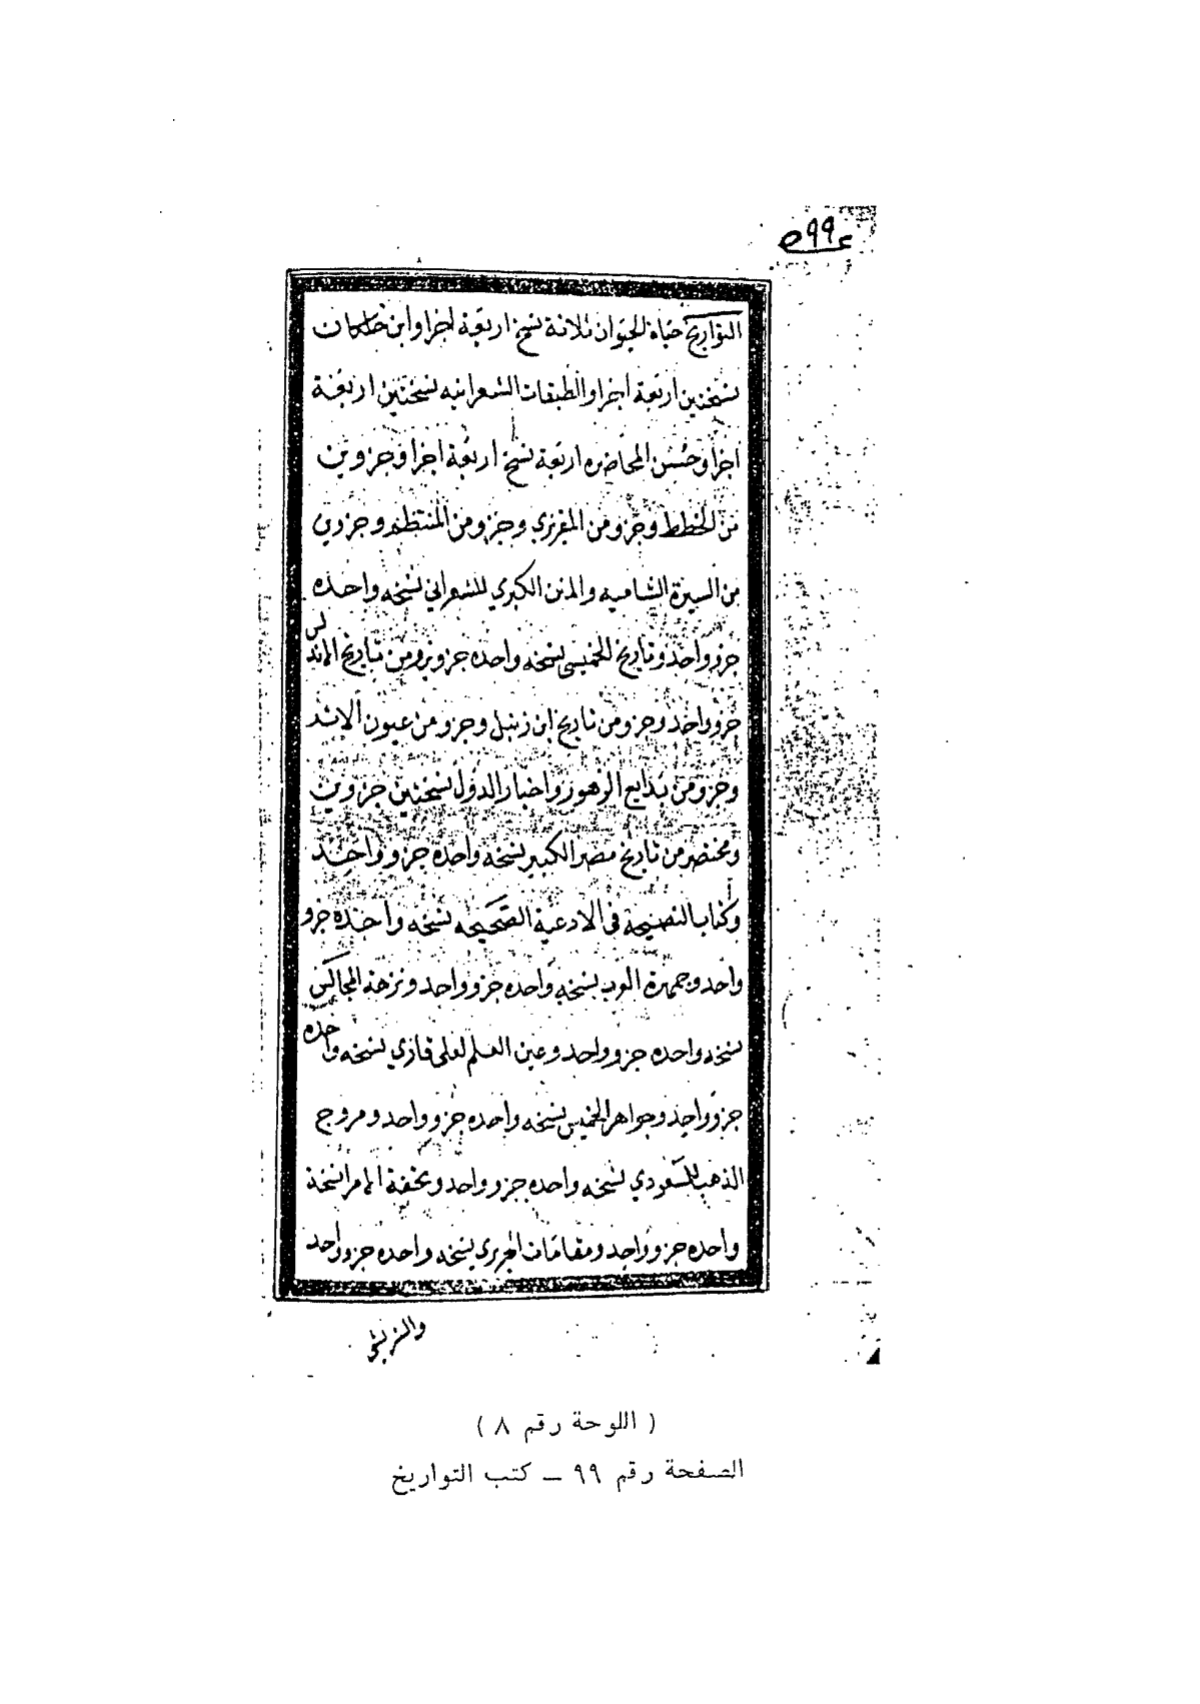 ٩٩
التواريخ حياة الحيوان ثلاثة نسخ اربعة اجزا وابن خلكان
نسختين اربعة اجزا والطبقات الشعرانيه نسختين اربعة
اجزا وحسن المحاضره اربعة نسخ اربعة اجزا وجزوين
من الخطط وجزو من المقريزي وجزو من المنتظم وجزوين
من السيرة الشاميه والمنن الكبري للشعراني نسخه واحده
جزو واحد وتاريخ الخميس نسخه واحده جزو وجزو من تاريخ الاندلس
جزو واحد وجزو من تاريخ ابن زنبل وجزو من عيون الاثر
وجزو من بدايع الزهور واخبار الدول نسختين جزوين
ومختصر من تاريخ مصر الكبير نسخه واحده جزو واحد
وكتاب النصيحة في الادعية الصحيحه نسخه واحده جزو
واحد وجمهرة العرب نسخه واحده جزو واحد ونزهة المجالس
نسخه واحده جزو واحد وعين العلم لعلي قاري نسخه واحده
جزو واحد وجواهر الخميس نسخه واحده جزو واحد ومروج
الذهب للمسعودي نسخه واحده جزو واحد وتحفة نسخة
واحده جزو واحد ومقامات الحريري نسخه واحده جزو واحد
والشريشي
( اللوحة رقم ٨ )
الصفحة رقم ٩٩ – كتب التواريخ